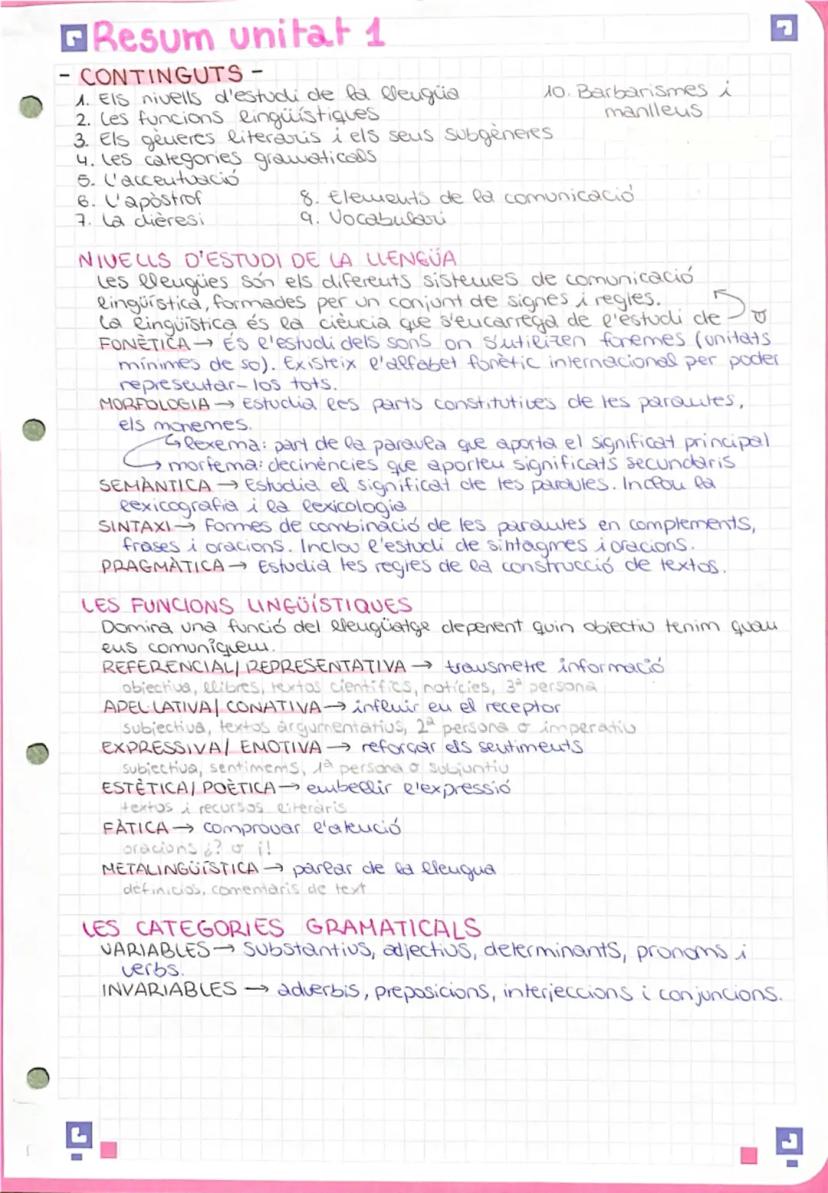 Resum unitat 1
- CONTINGUTS -
1. Els nivells d'estudi de la llengüa
2. Les funcions lingüístiques
3. Els gèneres literaris i els seus subgèneres
4. Les categories gramaticals
5. L'accentuació
6. L'apòstrof
7. La dièresi
8. Elements de la comunicació
9. Vocabulari
10. Barbarismes i
manlleus
NIVELLS D'ESTUDI DE LA LLENGÜA
Les llengües són els diferents sistemes de comunicació
lingüística, formades per un conjunt de signes i regles.
La lingüística és la ciència que s'encarrega de l'estudi de
FONÈTICA → És l'estudi dels sons on s'utilitzen fonemes (unitats
mínimes de so). Existeix l'alfabet fonètic internacional per poder
representar-los tots.
MORFOLOGIA → Estudia les parts constitutives de les paraules,
els monemes.
↳ lexema: part de la paraula que aporta el significat principal
→ morfema: decinències que aporten significats secundaris
SEMÀNTICA → Estudia el significat de les paraules. Inclou la
lexicografia i la lexicologia
SINTAXI → Formes de combinació de les paraules en complements,
frases i oracions. Inclou l'estudi de sintagmes i oracions.
PRAGMÀTICA → Estudia les regles de la construcció de textos.
LES FUNCIONS LINGÜÍSTIQUES
Domina una funció del llengüatge depenent quin objectiu tenim quan
ens comuniquem.
REFERENCIAL/REPRESENTATIVA → transmetre informació
objectiva, llibres, textos científics, notícies, 3ª persona
APEL·LATIVA/CONATIVA → influir en el receptor
subjectiva, textos argumentatius, 2ª persona o imperatiu
EXPRESSIVA/EMOTIVA → reforçar els sentiments
subjectiva, sentiments, 1ª persona o subjuntiu
ESTÈTICA/POÈTICA → embellir l'expressió
textos i recursos literaris
FÀTICA → comprovar l'atenció
oracions ¿? o ¡!
METALINGÜÍSTICA → parlar de la llengua
definicios, comentaris de text
LES CATEGORIES GRAMATICALS
VARIABLES → substantius, adjectius, determinants, pronoms i
verbs.
INVARIABLES → adverbis, preposicions, interjeccions i conjuncions.